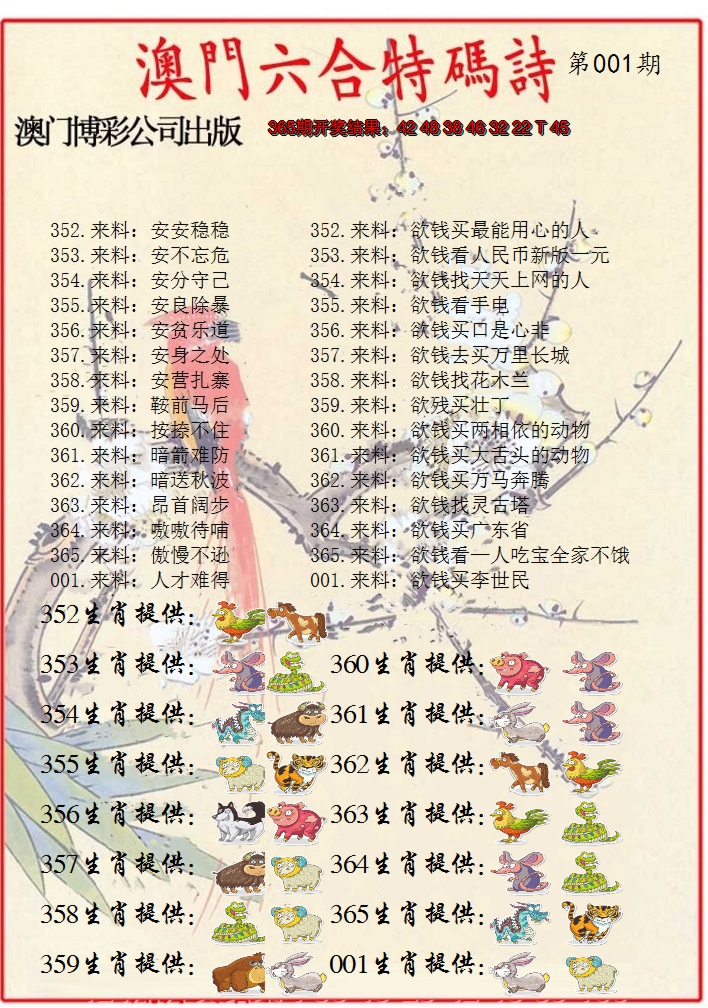 澳門六合特碼詩 第001期
澳门博彩公司出版 365期开奖结果：42 48 38 46 32 22 T 45
352.来料：安安稳稳 352.来料：欲钱买最能用心的人
353.来料：安不忘危 353.来料：欲钱看人民币新版一元
354.来料：安分守己 354.来料：欲钱找天天上网的人
355.来料：安良除暴 355.来料：欲钱看手电
356.来料：安贫乐道 356.来料：欲钱买口是心非
357.来料：安身之处 357.来料：欲钱去买万里长城
358.来料：安营扎寨 358.来料：欲钱找花木兰
359.来料：鞍前马后 359.来料：欲残买壮丁
360.来料：按捺不住 360.来料：欲钱买两相依的动物
361.来料：暗箭难防 361.来料：欲钱买大舌头的动物
362.来料：暗送秋波 362.来料：欲钱买万马奔腾
363.来料：昂首阔步 363.来料：欲钱找灵古塔
364.来料：嗷嗷待哺 364.来料：欲钱买广东省
365.来料：傲慢不逊 365.来料：欲钱看一人吃宝全家不饿
001.来料：人才难得 001.来料：欲钱买李世民
352生肖提供：
353生肖提供： 360生肖提供：
354生肖提供： 361生肖提供：
355生肖提供： 362生肖提供：
356生肖提供： 363生肖提供：
357生肖提供： 364生肖提供：
358生肖提供： 365生肖提供：
359生肖提供： 001生肖提供：